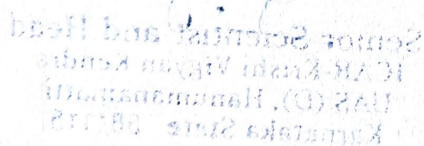 Senior Scientist and Head
ICAR-Krishi Vigyan Kendra
UAS (D), Hanumanamatti
Karnataka State 581115